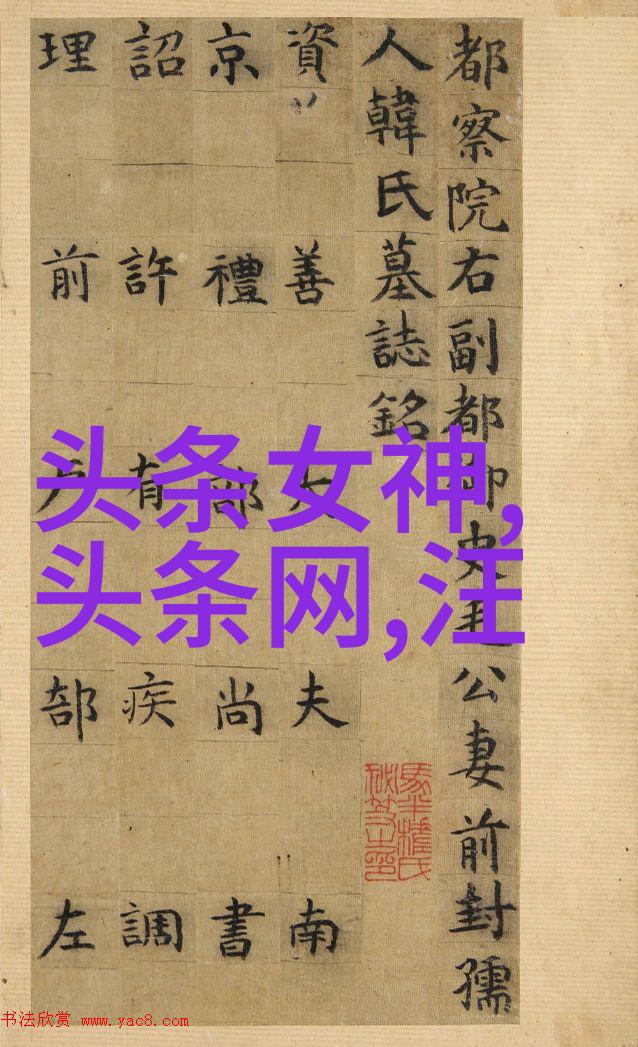 都察院右副都御史毛公妻前封孺
人韓氏墓誌銘
資善大夫南
京禮部尚書
詔許有疾調
理前户部左
头条女神,
头条网,汪
书法欣赏 www.yac8.com